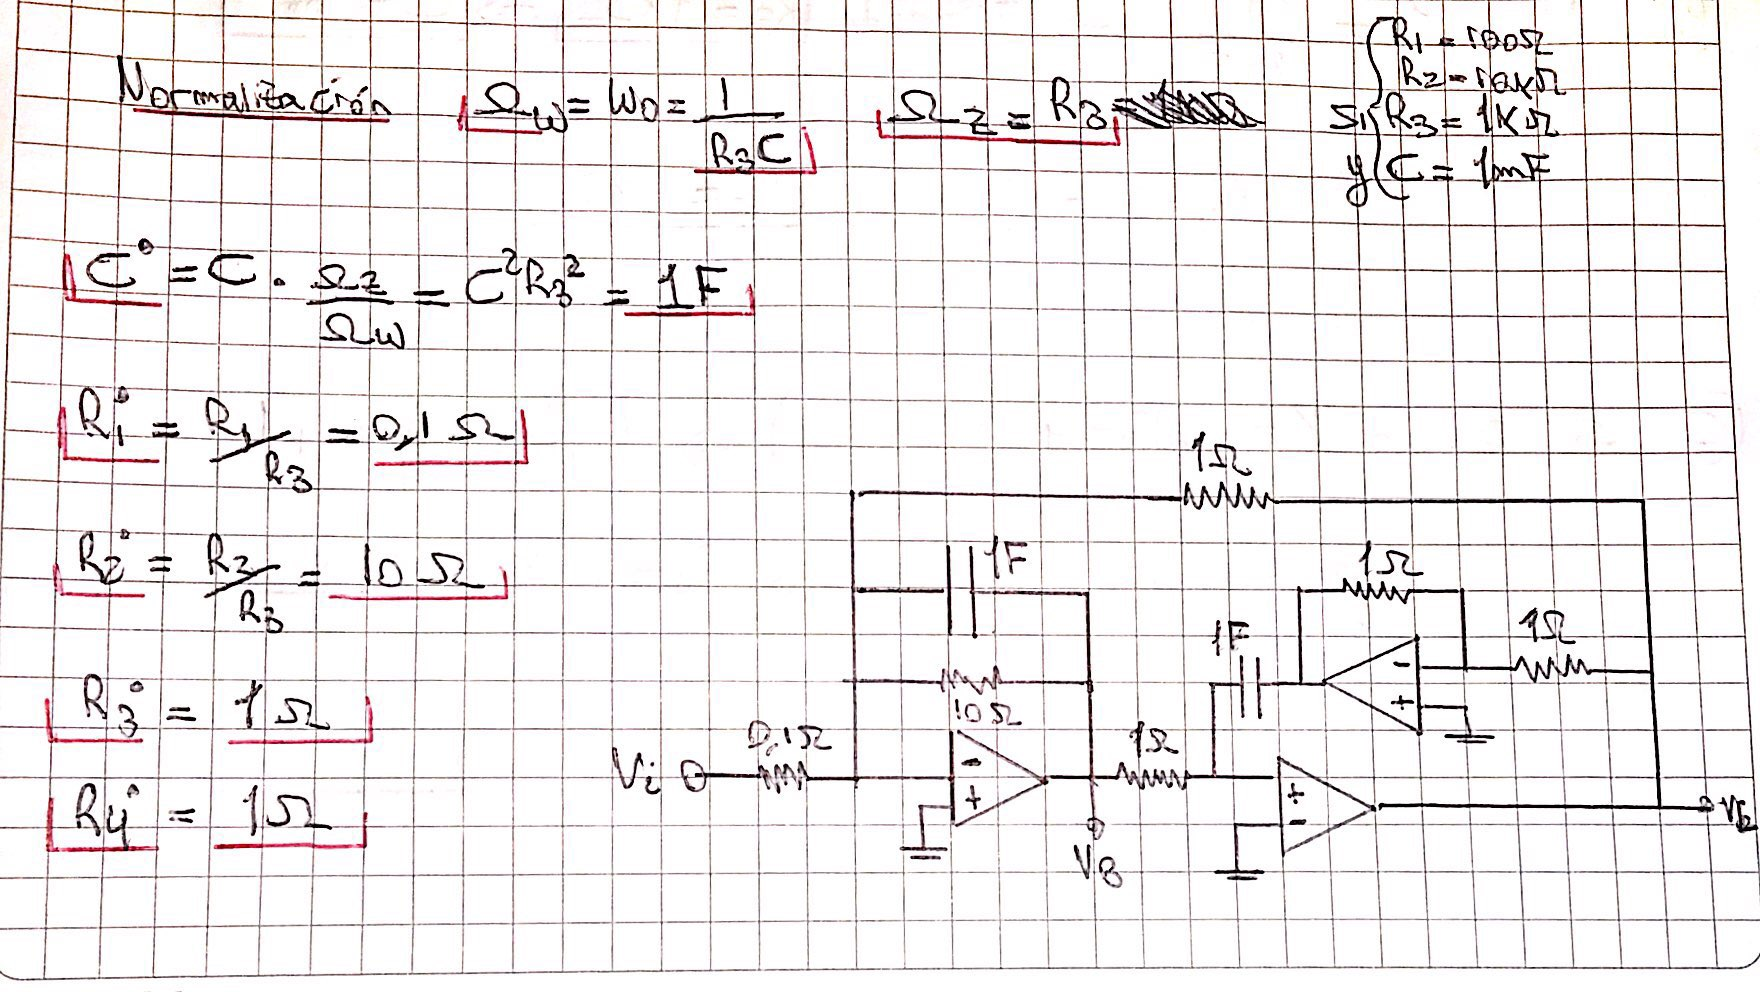 Normalización Ω_w = W0 = 1/(R3C) Ω_Z = R3
Si { R1 = 100Ω
R2 = 10KΩ
R3 = 1KΩ
y C = 1mF
C° = C · Ω_Z/Ω_W = C²R3² = 1F
R1° = R1/R3 = 0,1 Ω
R2° = R2/R3 = 10 Ω
R3° = 1Ω
R4° = 1Ω
1Ω
1F
1Ω
1F
1Ω
10Ω
Vi
0,1Ω
-
+
1Ω
-
+
+
-
VB